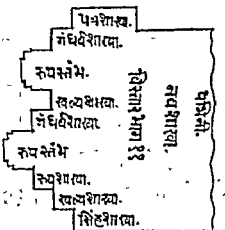 पत्रशाखा.
गंधर्वशाखा.
रुपस्तंभ.
खल्वशाखा.
गंधर्वशाखा.
रुपस्तंभ
रुपशाखा.
खल्वशाखा.
सिंहशाखा.
विस्तार भाग ११
नवशाखा.
पद्मिनी.